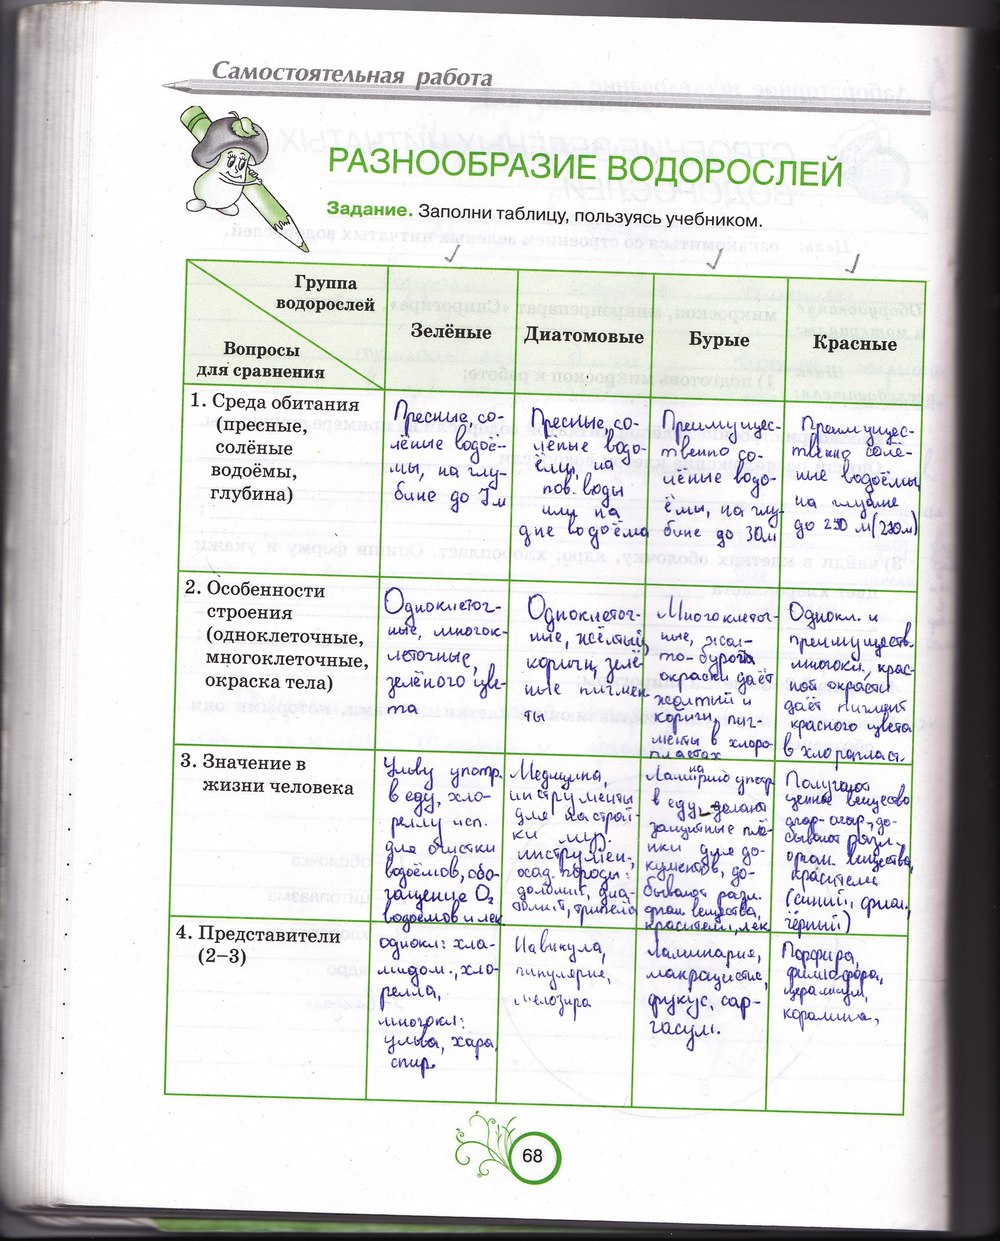 Самостоятельная работа
РАЗНООБРАЗИЕ ВОДОРОСЛЕЙ
Задание. Заполни таблицу, пользуясь учебником.
Группа
водорослей
Вопросы
для сравнения
Зелёные
Диатомовые
Бурые
Красные
1. Среда обитания
(пресные,
солёные
водоёмы,
глубина)
Пресные, со-
лёные водоё-
мы, на глу-
бине до 7м
Пресные, со-
лёные водо-
ёмы, на
пов. воды
или на
дне водоёма
Преимущес-
твенно со-
лёные водо-
ёмы, на глу-
бине до 30м
Преимущес-
твенно солё-
ные водоёмы,
на глубине
до 250 м (230м)
2. Особенности
строения
(одноклеточные,
многоклеточные,
окраска тела)
Одноклеточ-
ные, многок-
леточные,
зелёного цве-
та
Одноклеточ-
ные, жёлтый,
коричн, зелё-
ные пигмен
ты
Многоклеточ-
ные, жёл-
то-бурой
окраски даёт
желтый и
коричн. пиг-
менты в хлоро
пластах
Однокл. и
преимуществ.
многокл., крас-
ной окраски
даёт пигмент
красного цвета
в хлоропласт.
3. Значение в
жизни человека
Ульву употр.
в еду, хло-
реллу исп.
для очистки
водоёмов, обо-
гащение O₂
водоёмов и лек
Медицина,
инструменты
для настрой-
ки муз.
инструмен.,
осад. породы:
доломит, диа-
томит, трипела
Ламинарию употр
в еду, делают
защитные плё-
нки для до-
кументов, до-
бывают разл.
орган вещества,
красители, лек
Получают
ценное вещество
агар-агар, до-
бывают разл.
орган. вещества,
красители
(синий, фиол,
чёрный)
4. Представители
(2–3)
однокл: хла-
мидом., хло-
релла,
многокл:
ульва, хара,
спир.
Навикула,
пинулярия,
мелозира
Ламинария,
макроцистис,
фукус, сар-
гассум.
Порфира,
филлофора,
церамиум,
коралина,
68